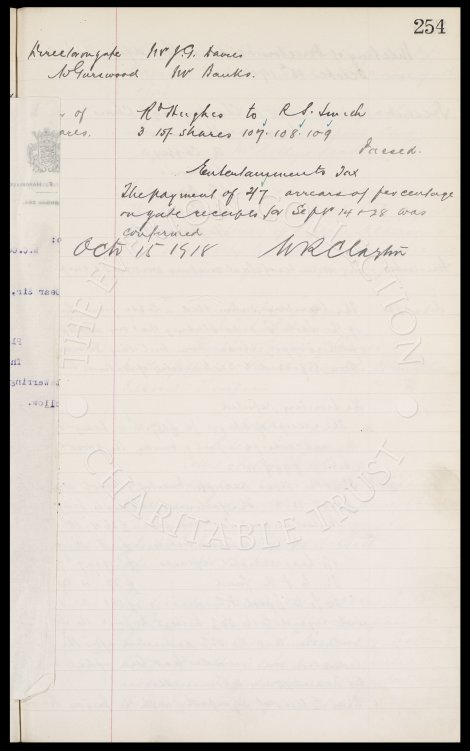 254
Directorongate Mr J.G. Davies
Mr Banks.
of Rd Hughes to R.S.
3 15/- shares 107. 108. 109
Passed.
Entertainments Tax
The payment of 2/7 arrears of percentage
on gate receipts for Sept 14 & 28 was
confirmed
Octr 15 1918 W R Clayton
Dear Sir,
THE EVERTON COLLECTION
CHARITABLE TRUST